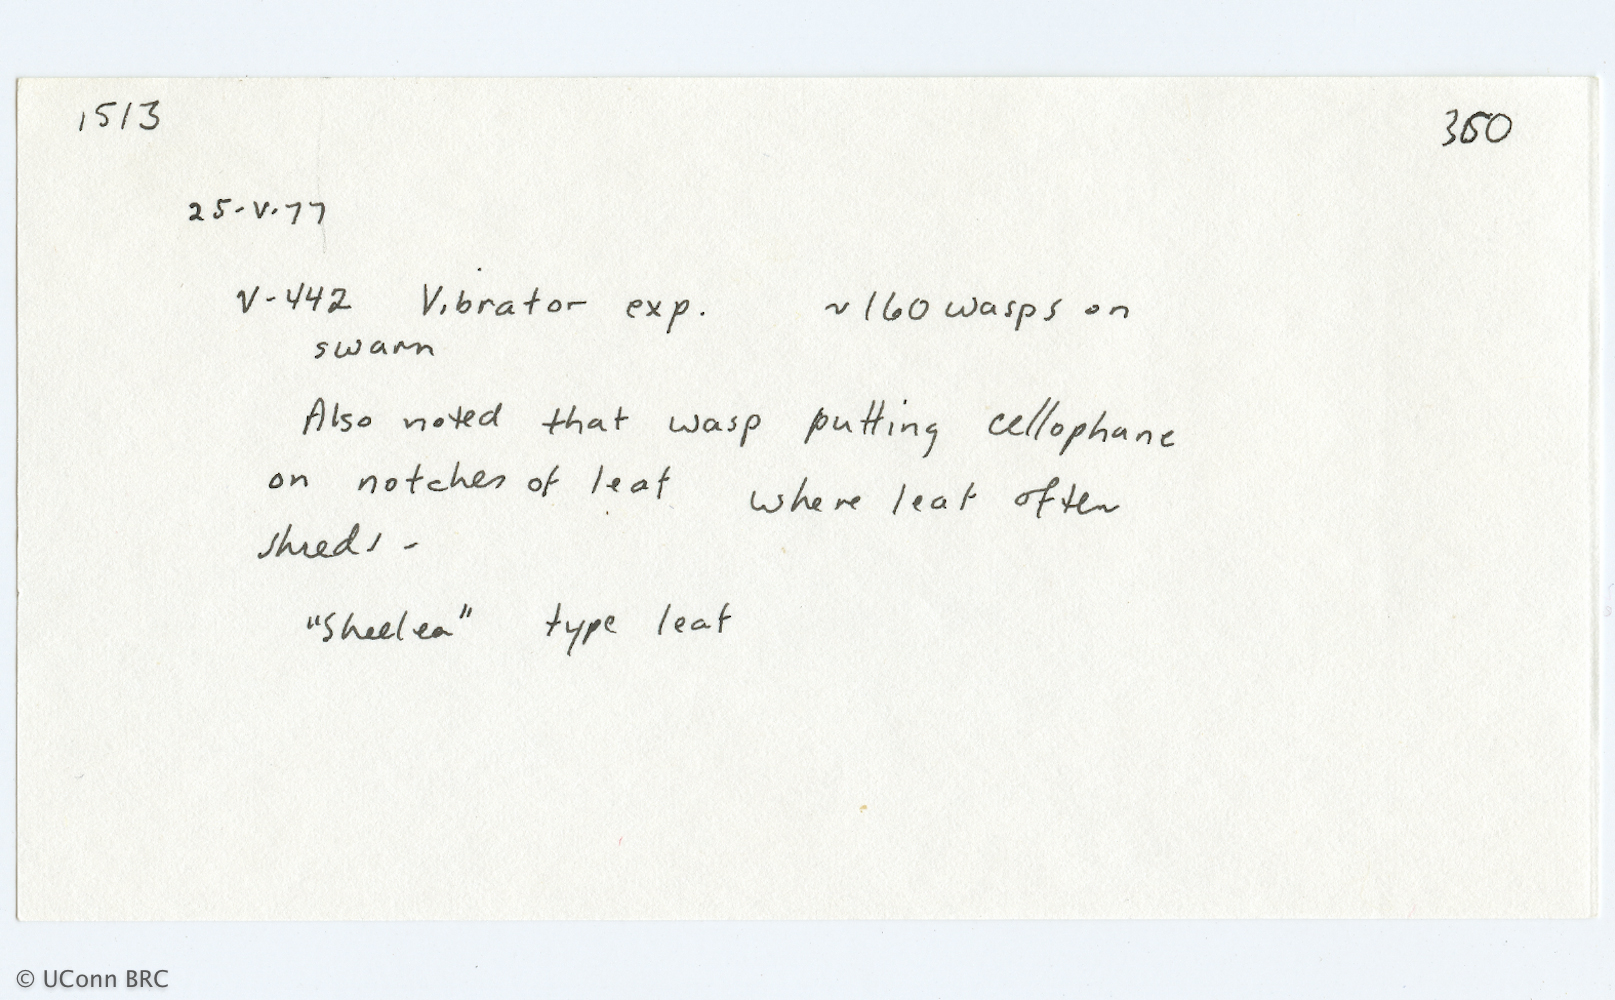 1513
350
25-V-77
V-442 Vibrator exp. ~160 wasps on
swarm
Also noted that wasp putting cellophane
on notches of leaf where leaf often
shreds -
"Sheelea" type leaf
© UConn BRC